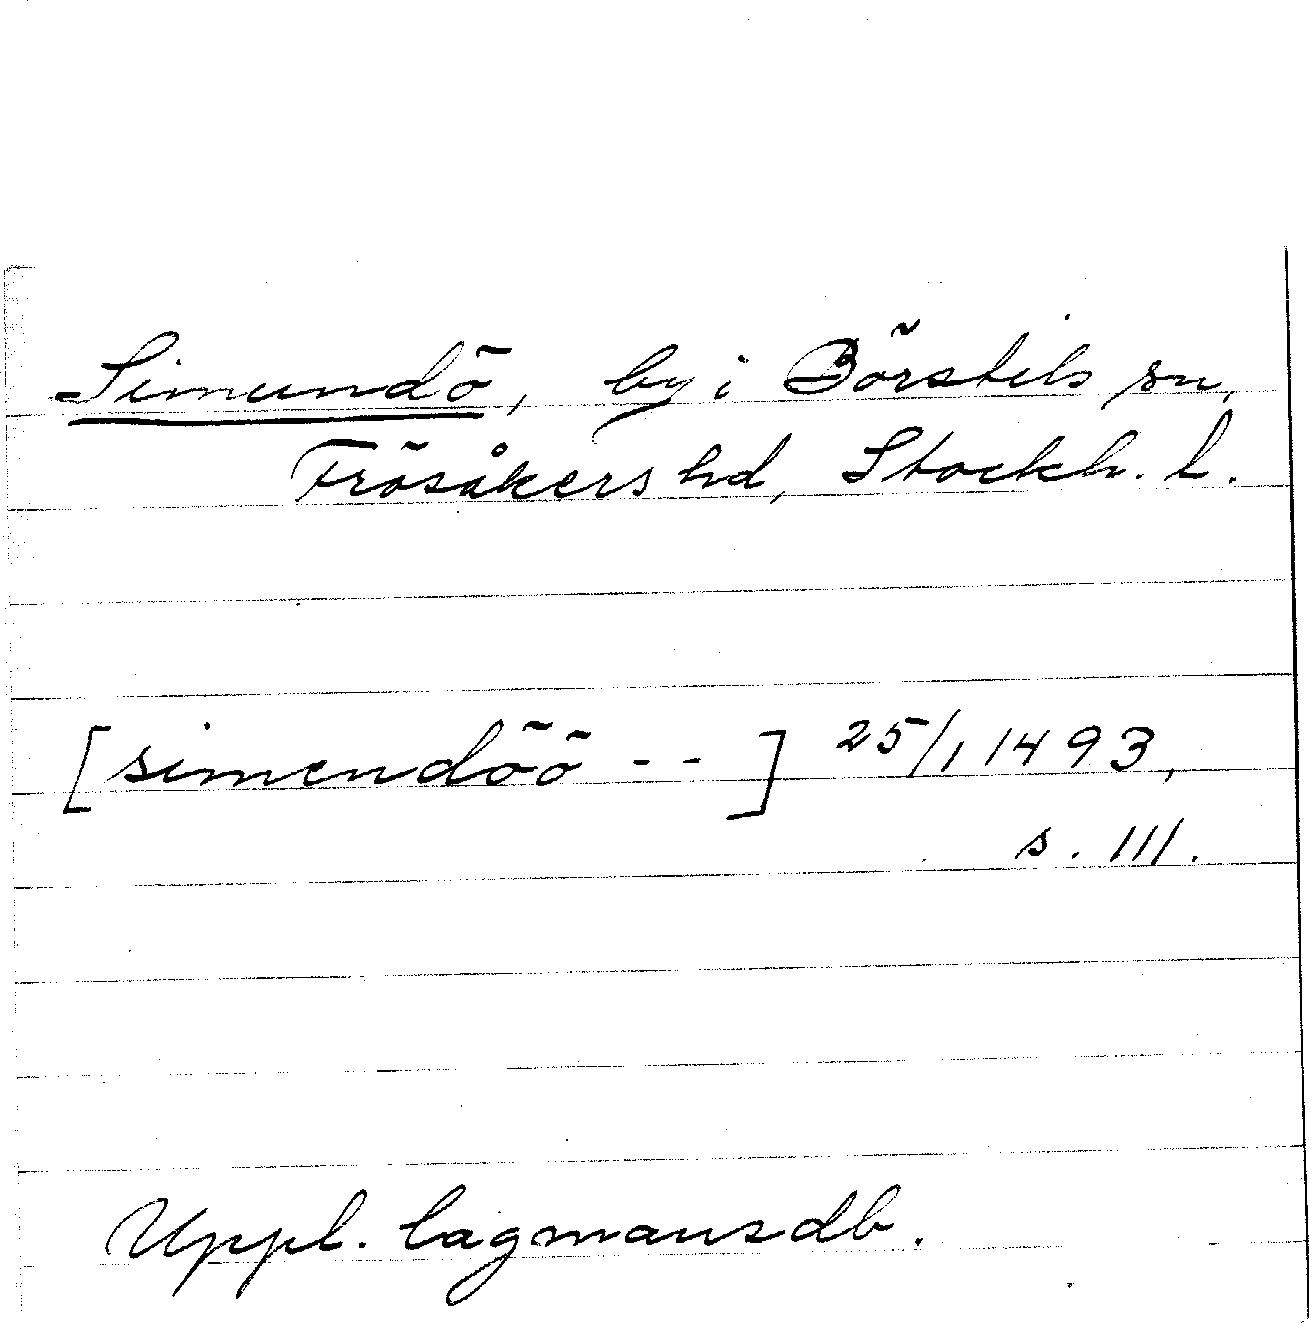 Simundö, by i Börstels sn,
Frösåkers hd, Stockh. l.
[simendöö - - ] 25/1 1493,
s. 111.
Uppl. lagmansdb.